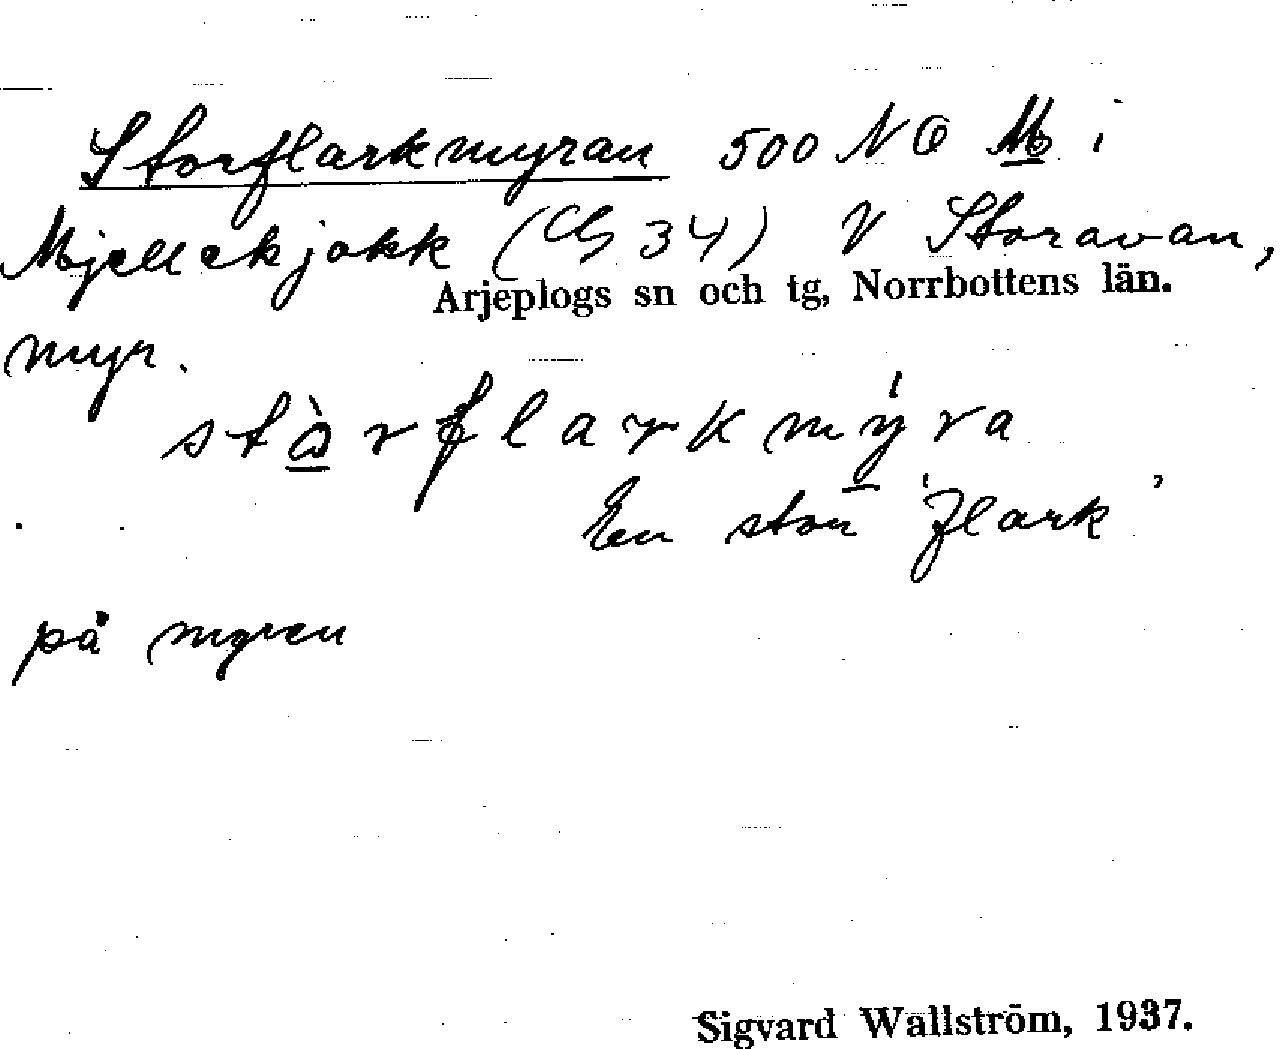 Storflarkmyran 500 NO M i
Mjellekjokk (Cb 34) V Storavan,
Arjeplogs sn och tg, Norrbottens län.
myr.
stòrflarkmýra
En stor 'flark'
på myren
Sigvard Wallström, 1937.